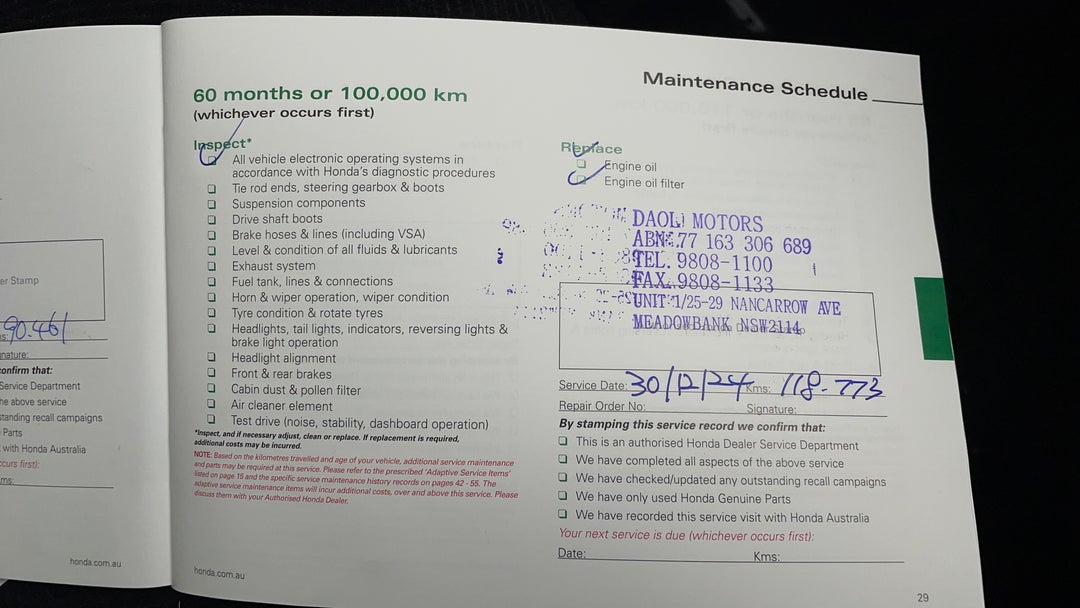 er Stamp
ms: 90.461
nature:
onfirm that:
Service Department
he above service
standing recall campaigns
Parts
with Honda Australia
ccurs first):
ms:
honda.com.au
Maintenance Schedule
60 months or 100,000 km
(whichever occurs first)
Inspect*
All vehicle electronic operating systems in
accordance with Honda's diagnostic procedures
Tie rod ends, steering gearbox & boots
Suspension components
Drive shaft boots
Brake hoses & lines (including VSA)
Level & condition of all fluids & lubricants
Exhaust system
Fuel tank, lines & connections
Horn & wiper operation, wiper condition
Tyre condition & rotate tyres
Headlights, tail lights, indicators, reversing lights &
brake light operation
Headlight alignment
Front & rear brakes
Cabin dust & pollen filter
Air cleaner element
Test drive (noise, stability, dashboard operation)
*Inspect, and if necessary adjust, clean or replace. If replacement is required,
additional costs may be incurred.
NOTE: Based on the kilometres travelled and age of your vehicle, additional service maintenance
and parts may be required at this service. Please refer to the prescribed 'Adaptive Service Items'
listed on page 15 and the specific service maintenance history records on pages 42 - 55. The
adaptive service maintenance items will incur additional costs, over and above this service. Please
discuss them with your Authorised Honda Dealer.
honda.com.au
Replace
Engine oil
Engine oil filter
DAOL MOTORS
ABN:77 163 306 689
TEL. 9808-1100
FAX. 9808-1133
UNIT 1/25-29 NANCARROW AVE
MEADOWBANK NSW2114
Service Date: 30/12/24 Kms: 118-773
Repair Order No: Signature:
By stamping this service record we confirm that:
This is an authorised Honda Dealer Service Department
We have completed all aspects of the above service
We have checked/updated any outstanding recall campaigns
We have only used Honda Genuine Parts
We have recorded this service visit with Honda Australia
Your next service is due (whichever occurs first):
Date: Kms:
29